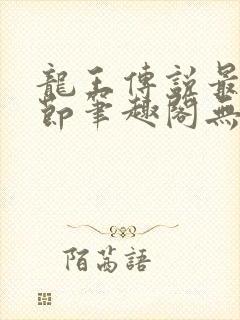 龍王傳說最
節筆趣閣無
陌萵語